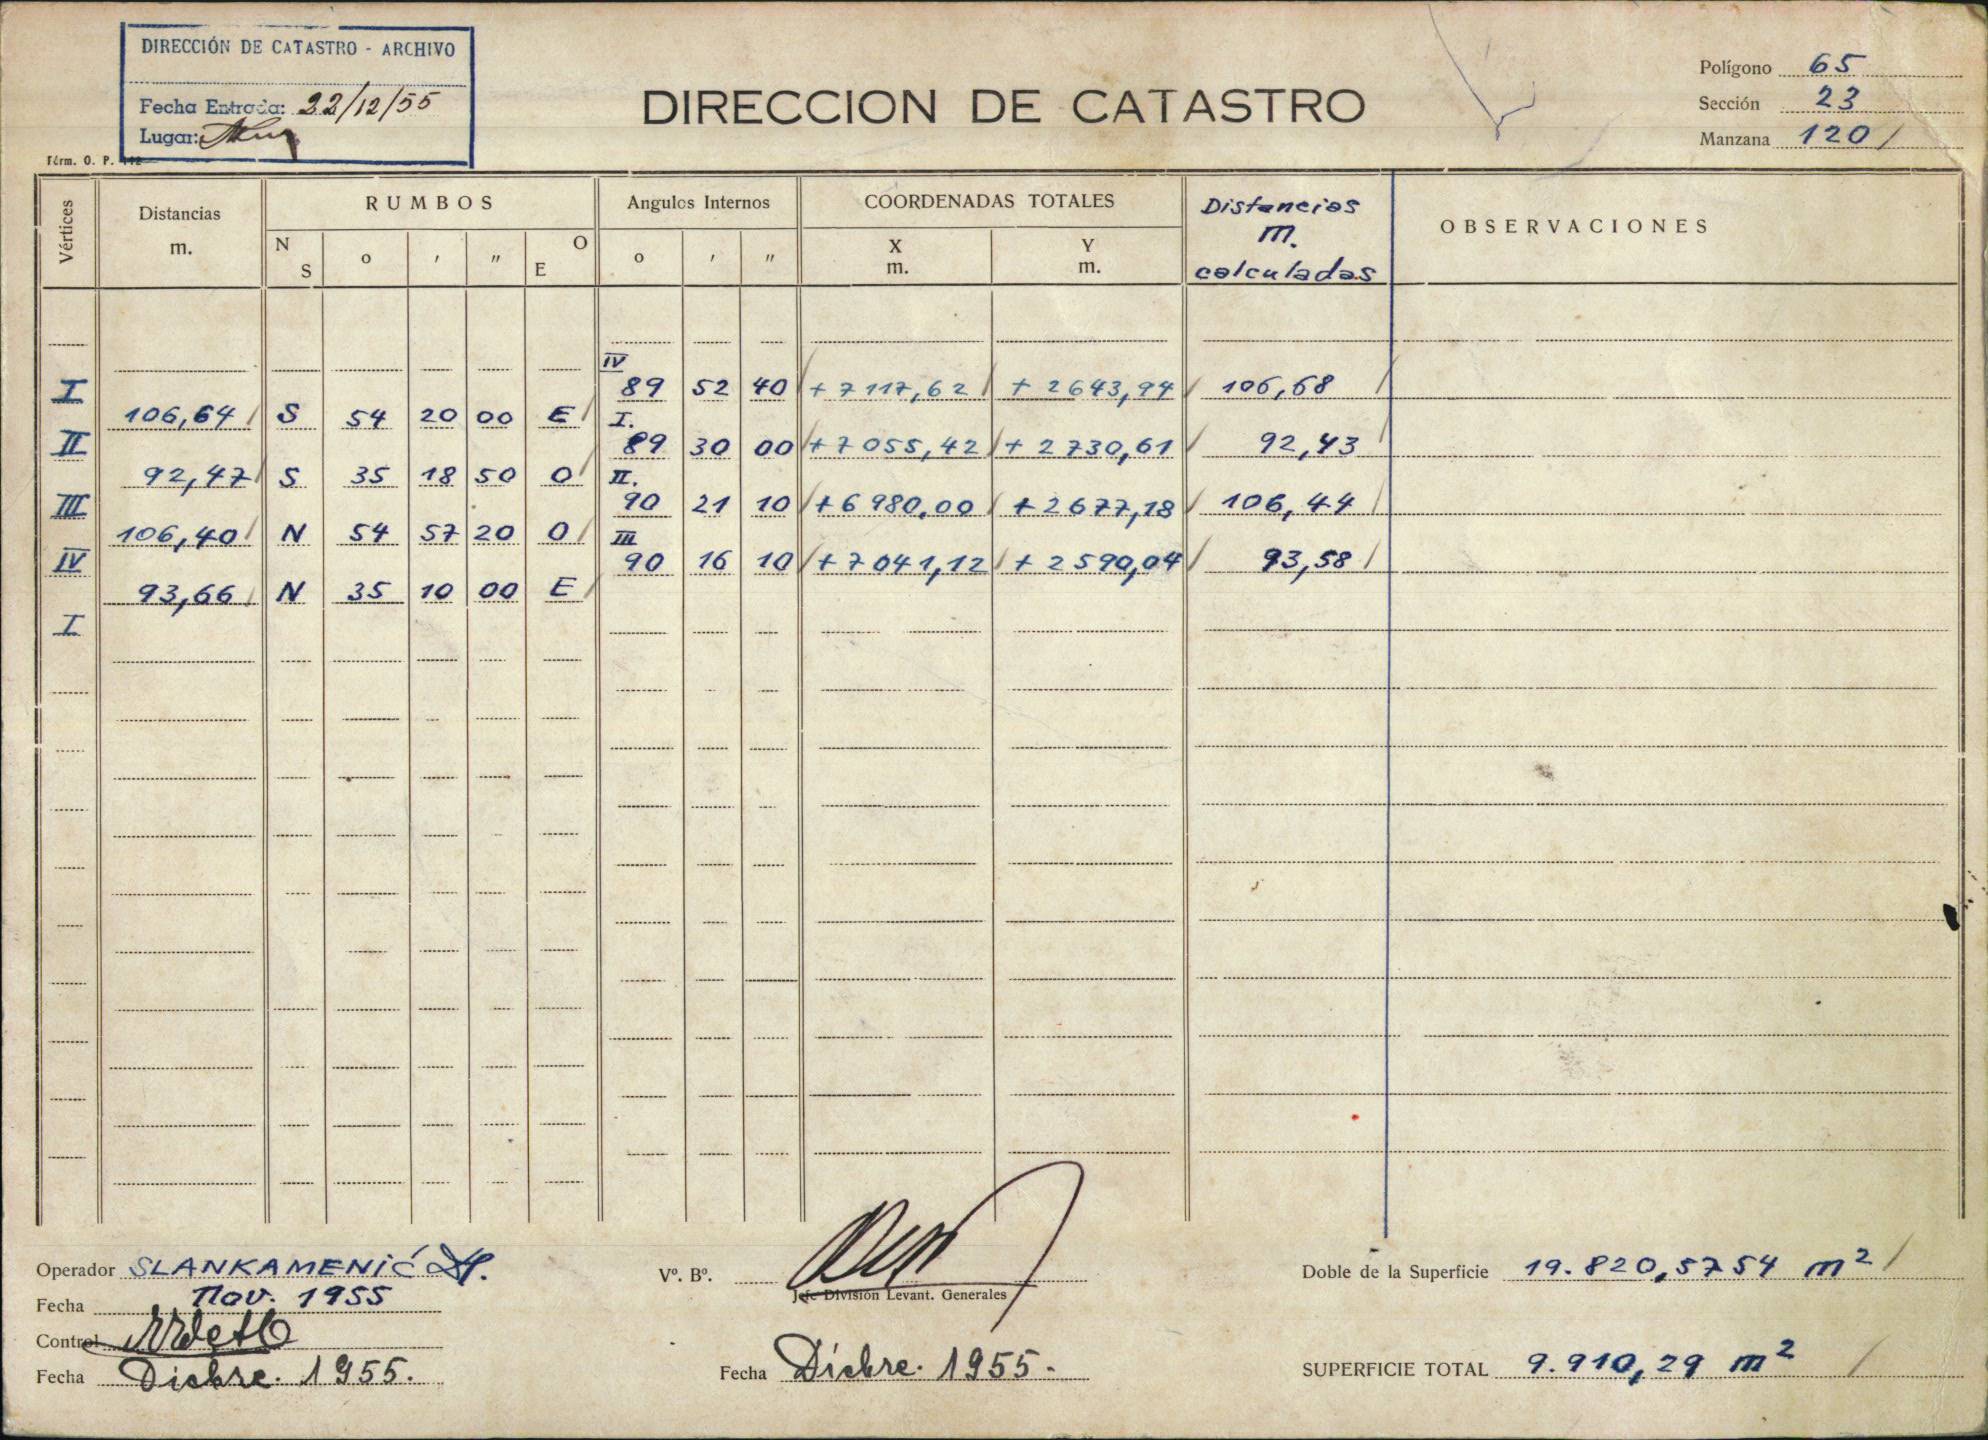 DIRECCIÓN DE CATASTRO - ARCHIVO
Fecha Entrada: 22/12/55
Lugar:
Fórm. O. P. 112
DIRECCION DE CATASTRO
Polígono 65
Sección 23
Manzana 120
Vértices
Distancias m.
RUMBOS
N S o ' " O E
Angulos Internos
o ' "
COORDENADAS TOTALES
X m. Y m.
Distancias m. calculadas
OBSERVACIONES
IV
I 89 52 40 + 7117,62 + 2643,94 106,68
106,64 S 54 20 00 E I.
II 89 30 00 + 7055,42 + 2730,61 92,43
92,47 S 35 18 50 O II.
III 90 21 10 + 6980,00 + 2677,18 106,44
106,40 N 54 57 20 O III
IV 90 16 10 + 7041,12 + 2590,04 93,58
93,66 N 35 10 00 E
I
Operador SLANKAMENIĆ
Fecha Nov. 1955
Control
Fecha Dicbre. 1955.
Vº. Bº.
Jefe División Levant. Generales
Fecha Dicbre. 1955.
Doble de la Superficie 19.820,5754 m²
SUPERFICIE TOTAL 9.910,29 m²